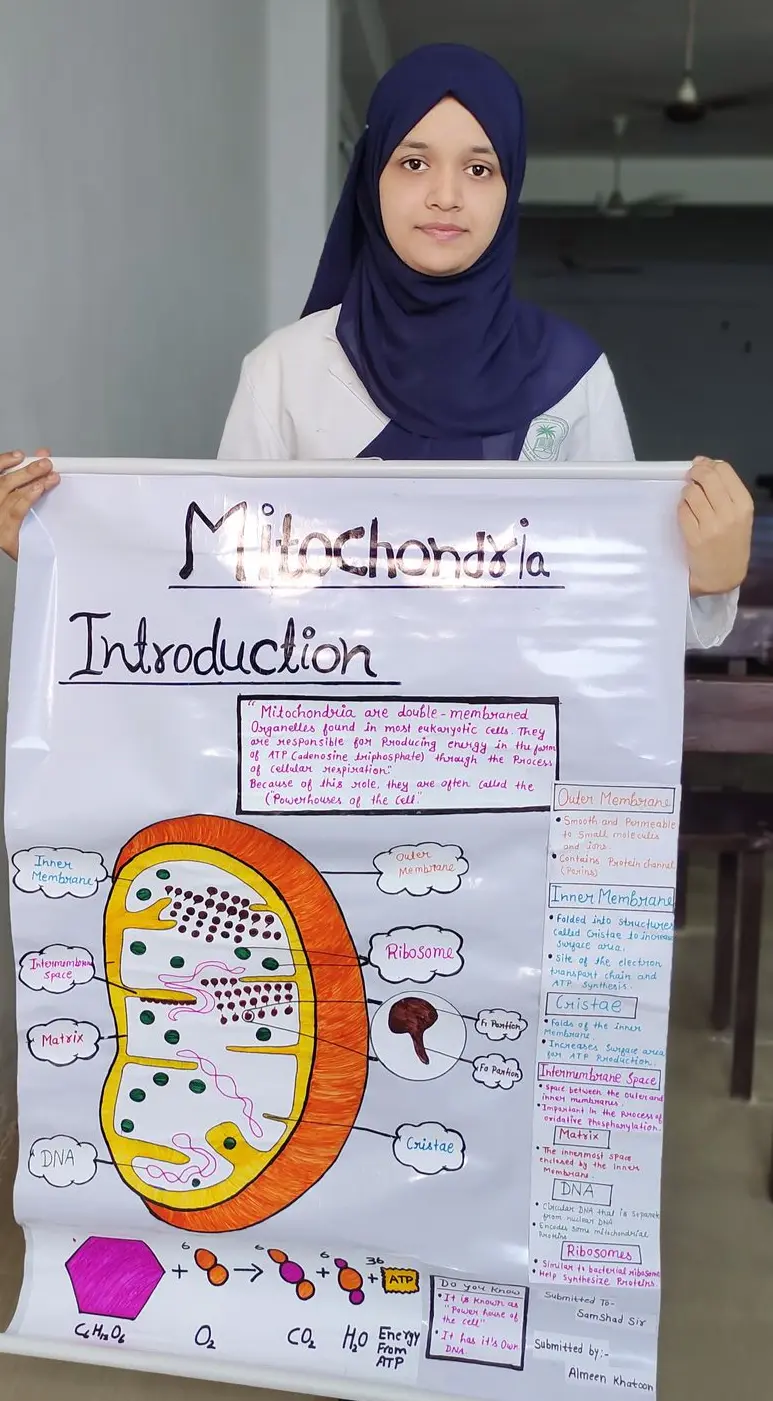 Mitochondria
Introduction
"Mitochondria are double-membraned
Organelles found in most eukaryotic cells. They
are responsible for Producing energy in the form
of ATP (adenosine triphosphate) through the Process
of cellular respiration."
Because of this role, they are often called the
("Powerhouses of the Cell"
Inner
Membrane
Intermembrane
Space
Matrix
DNA
Outer
Membrane
Ribosome
F1 Partion
Fo Partion
Cristae
Outer Membrane
• Smooth and Permeable
to Small molecules
and Ions.
• Contains Protein channel
(Porins)
Inner Membrane
• Folded into structures
called Cristae to increase
Surface area.
• Site of the electron
transport chain and
ATP Synthesis.
Cristae
• Folds of the inner
Membrane.
• Increases Surface area
for ATP Production.
Intermembrane Space
• Space between the outer and
inner membranes.
• Important in the Process of
oxidative Phosphorylation.
Matrix
• The innermost space
enclosed by the Inner
Membrane.
DNA
• Circular DNA that is Separate
from nuclear DNA
• Encodes some mitochondrial
Proteins
Ribosomes
• Similar to bacterial ribosome
• Help Synthesize Proteins.
6 + → 6 + 6 + 36 ATP
C6H12O6 O2 CO2 H2O Energy
From
ATP
Do you Know
• It is known as
"Power house of
the cell"
• It has it's Own
DNA.
Submitted To-
Samshad Sir
Submitted by:-
Almeen Khatoon